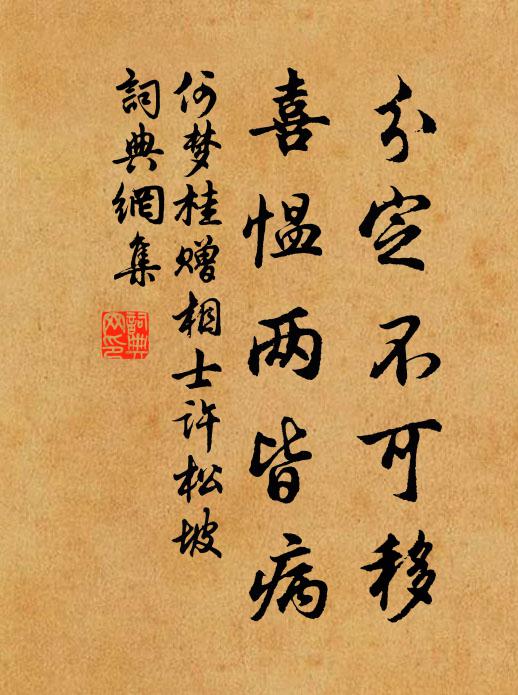 分定不可移
喜愠两皆病
何梦桂赠相士许松坡
詞典網集
詞典網印